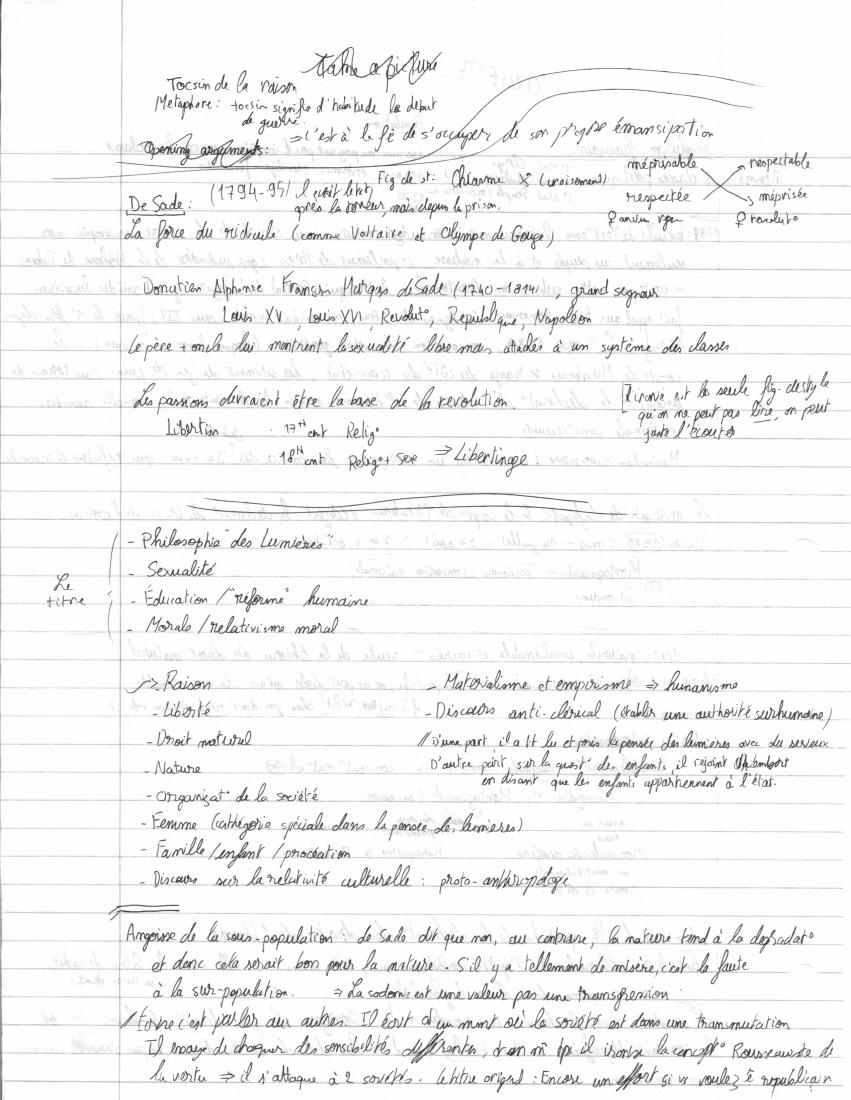 take a picture
Tocsin de la raison
Métaphore: tocsin signifie d'habitude le début
de guerre.
⇒ C'est à la fê de s'occuper de son propre émansipation
Opening arguments:
Fig de st: Chiasme X (croisement)
méprisable respectable
respectée méprisée
♀ revolut°
De Sade: (1794-95/ il écrit le txt
après la terreur, mais depuis la prison.
La force du ridicule (comme Voltaire et Olympe de Gouge)
Donatien Alphonse François Marquis de Sade (1740-1814), grand segneur
Louis XV, Louis XVI, Revolut°, Republique, Napoléon
Le père + oncle lui montrent la sexualité libre mais attachés à un système des classes.
Les passions devraient être la base de la revolution.
L'ironie est la seule fig. de style
qu'on ne peut pas lire, on peut
juste l'écouter
Libertin : 17th cent Relig°
: 18th cent Relig° + sexe ⇒ Libertinage.
Le
titre
- Philosophie "des Lumières"
- Sexualité
- Éducation / "réforme" humaine
- Morale/relativisme moral
-> Raison
- Liberté
- Droit naturel
- Nature
- Organizat° de la société
- Femme (cathégorie spéciale dans la pensée des lumières)
- Famille/enfant/procréation
- Discours sur la relativité culturelle : proto-anthropologie
- Materialisme et empirisme ⇒ humanisme
- Discours anti-clérical (établir une authorité surhumaine)
// D'une part, il a lu et pris la pensée des lumières avec du serieux
D'autre part, sur la quest° des enfants, il rejoint
en disant que les enfants appartiennent à l'état.
Angoisse de la sous-population : de Sade dit que non, au contraire, la nature tend à la degradat°
et donc cela serait bon pour la nature. S'il y a tellement de misère, c'est la faute
à la sur-population. ⇒ La sodomie est une valeur pas une transgression
// Ecrire c'est parler aux autres. Il écrit à un mmt où la société est dans une transmutation
Il essaye de choquer des sensibilités differentes, il ironise la concept° Rousseauiste de
la vertu ⇒ il s'attaque à 2 sociétés. Le titre original : Encore un effort si vs voulez ê republicain